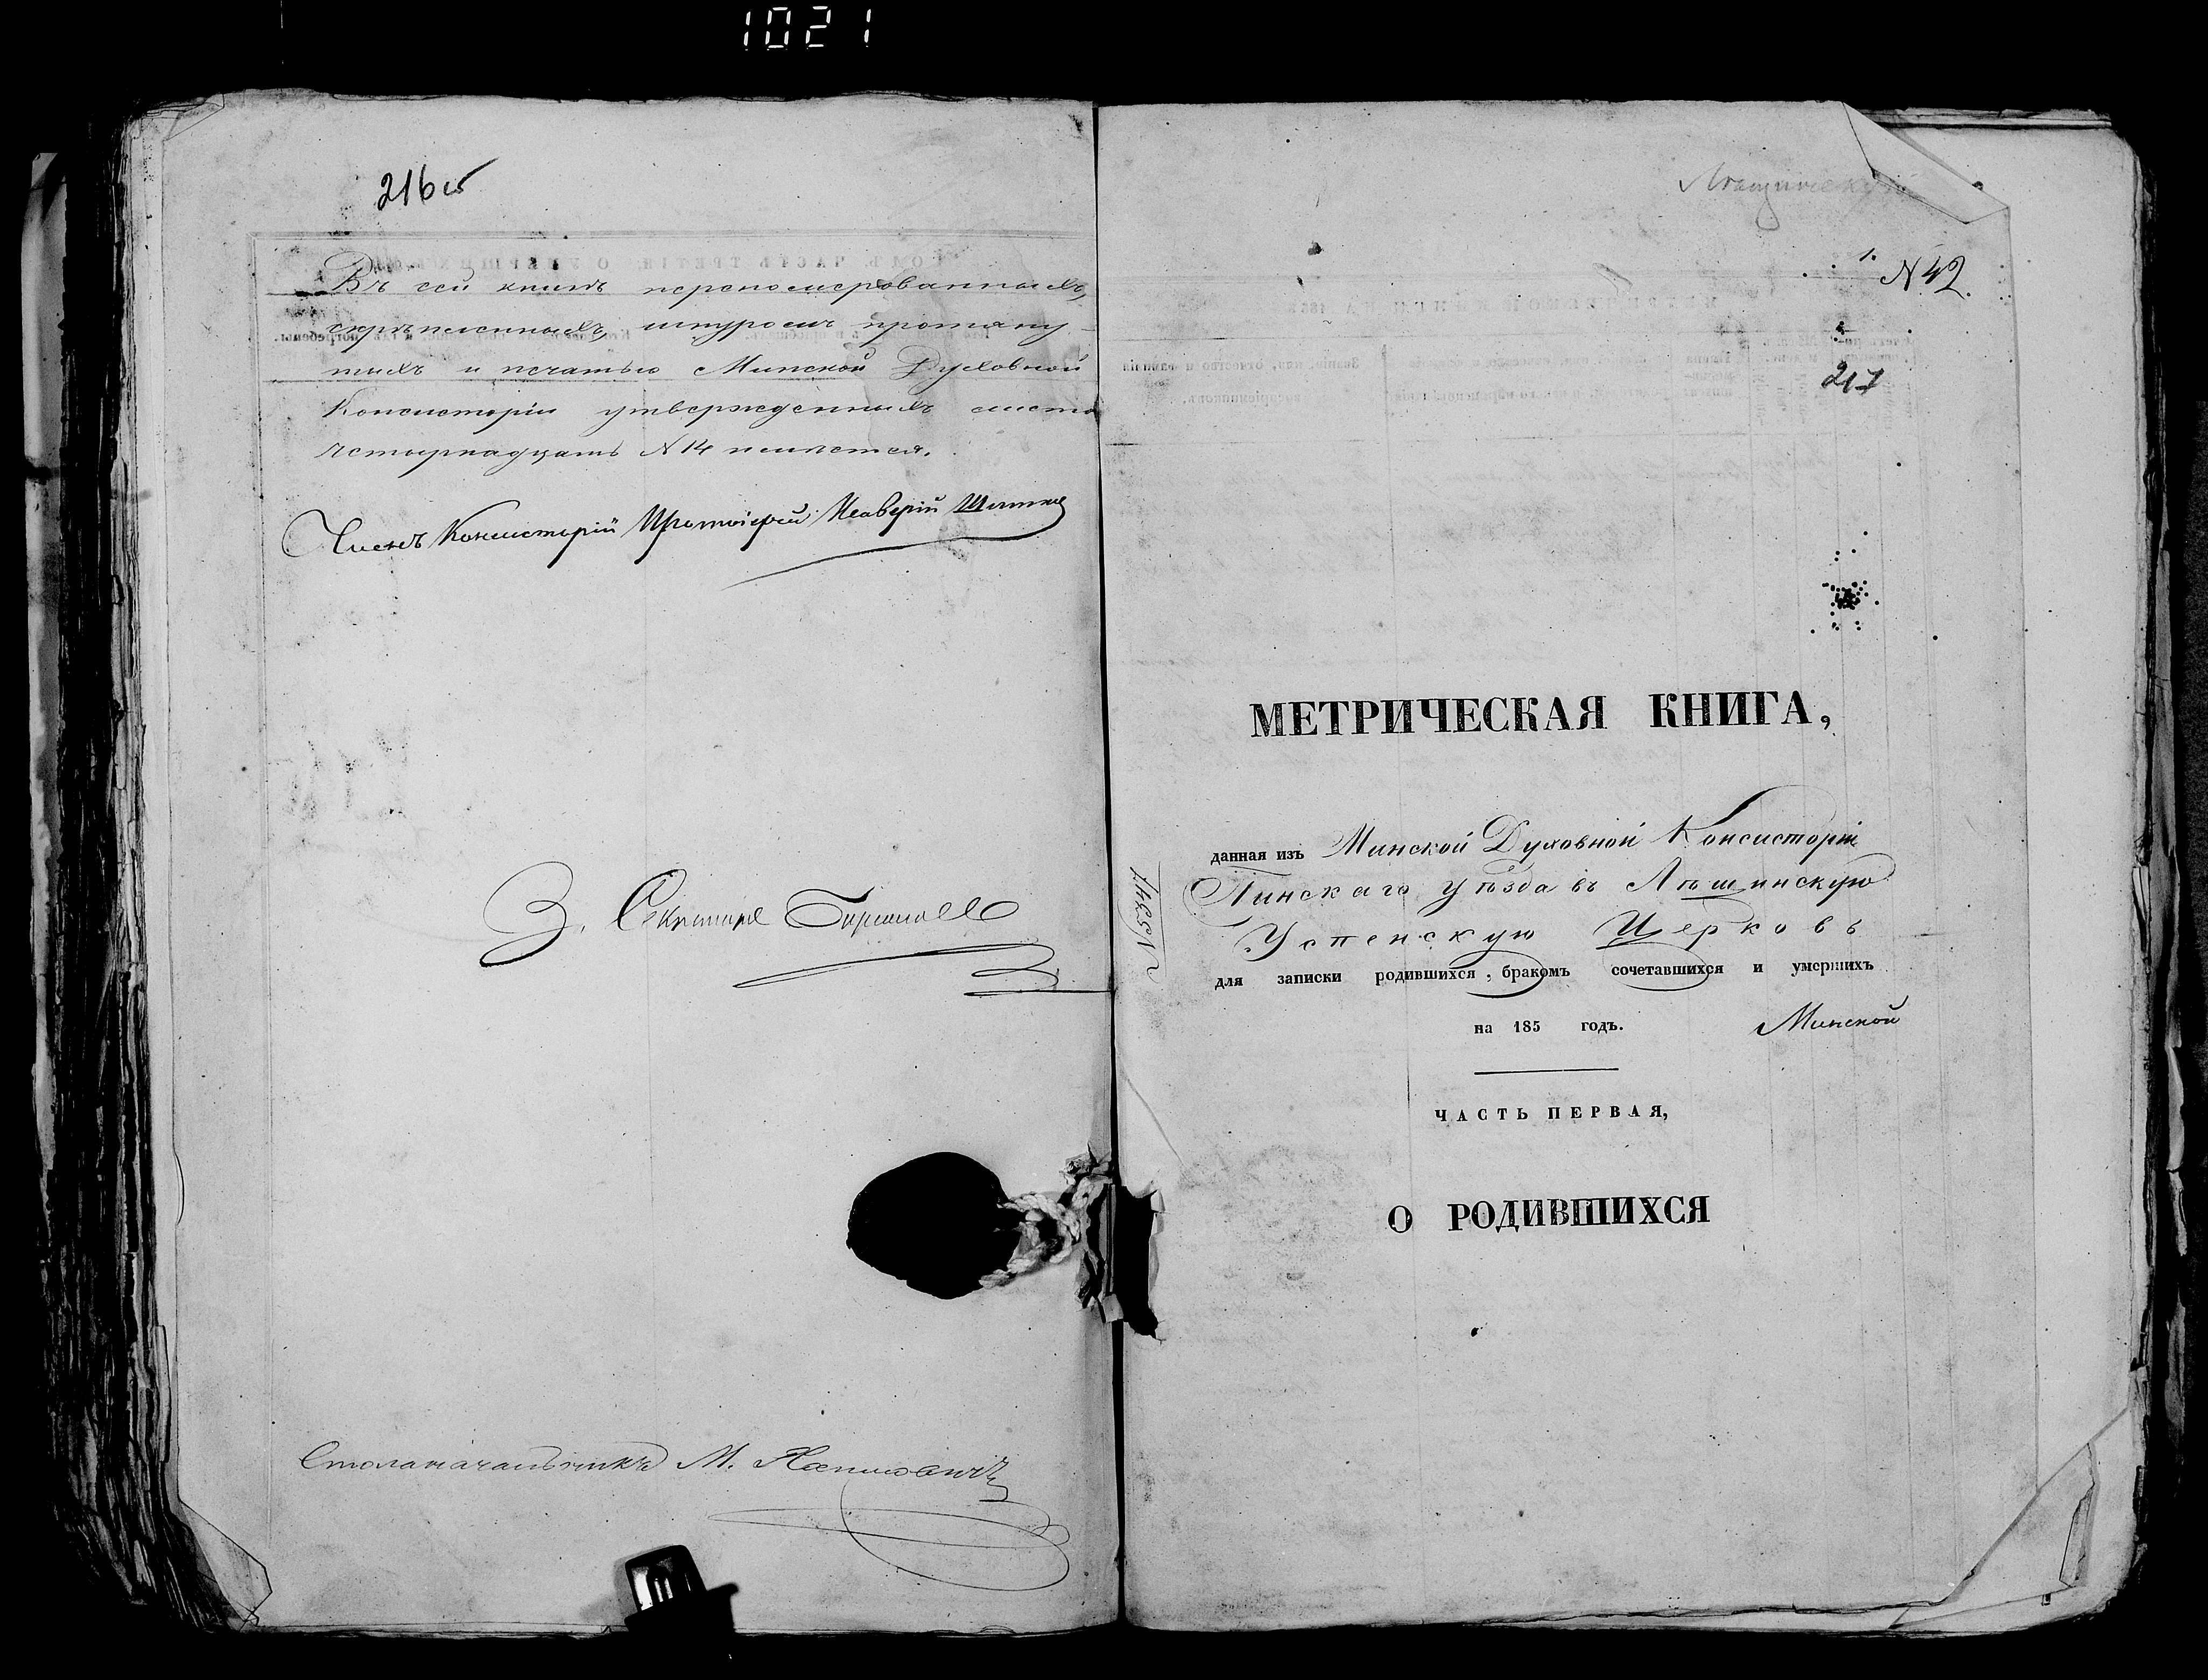 1021
216 об
Въ сей книгѣ перенумерованныхъ,
скрѣпленныхъ, шнуромъ протяну-
тыхъ и печатью Минской Духовной
Консисторіи утвержденныхъ листо
четырнадцать N 14 имѣется.
Членъ Консисторіи Протоіерей
З. Секретаря
Столоначальникъ М.
1.
N 42.
217
МЕТРИЧЕСКАЯ КНИГА,
данная изъ Минской Духовной Консисторіи
Пинскаго уѣзда въ Лѣшинскую
Успенскую Церковь
для записки родившихся, бракомъ сочетавшихся и умершихъ
на 185 годъ. Минской
ЧАСТЬ ПЕРВАЯ,
О РОДИВШИХСЯ